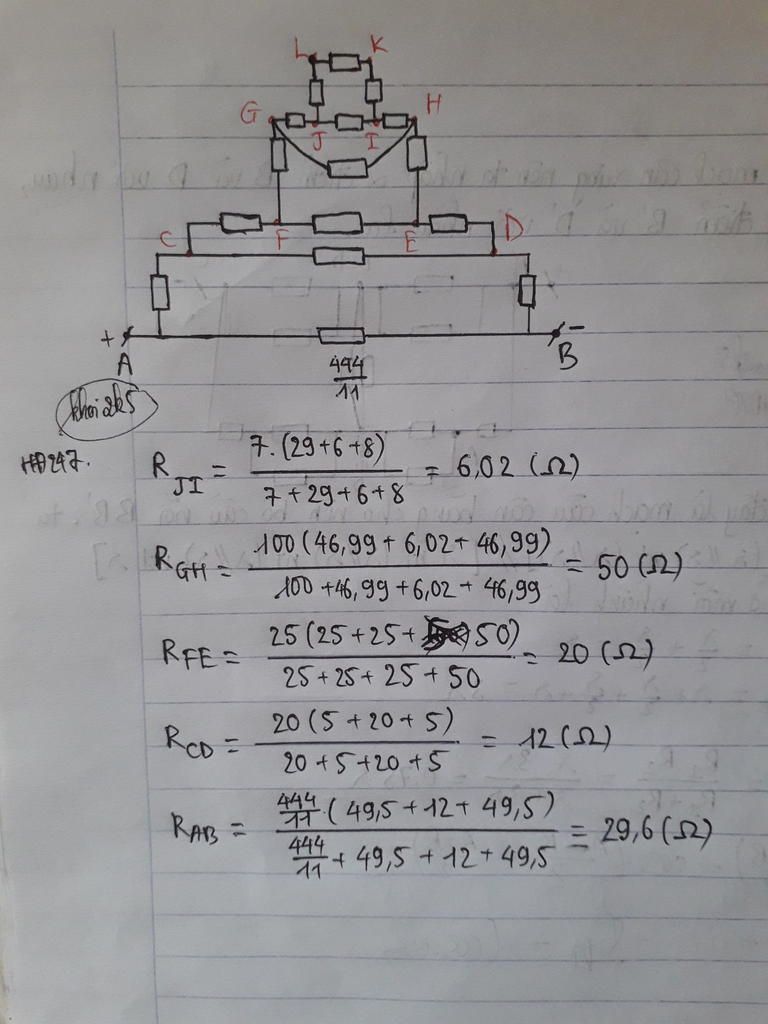 L K
G H
J I
C F E D
+ A B -
444/11
khoi2k5
HĐ247.
R_JI = 7.(29+6+8) / 7+29+6+8 = 6,02 (Ω)
R_GH = 100(46,99+6,02+46,99) / 100+46,99+6,02+46,99 = 50(Ω)
R_FE = 25(25+25+50) / 25+25+25+50 = 20(Ω)
R_CD = 20(5+20+5) / 20+5+20+5 = 12(Ω)
R_AB = 444/11.(49,5+12+49,5) / 444/11+49,5+12+49,5 = 29,6(Ω)